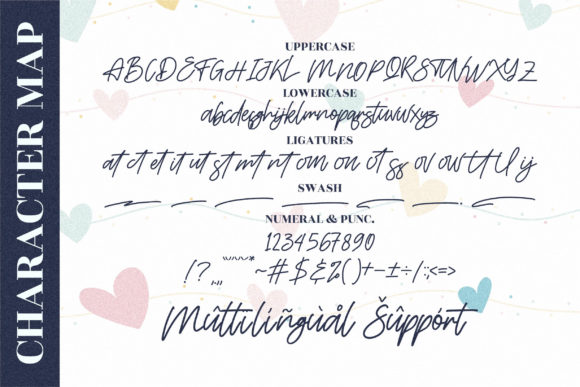 CHARACTER MAP
UPPERCASE
ABCDEFGHIJKL MNOPQRSTUVWXYZ
LOWERCASE
abcdefghijklmnopqrstuvwxyz
LIGATURES
at ct et it ut st mt nt om on ot ss ov ow tt ll ij
SWASH
NUMERAL & PUNC.
1234567890
!?.,,,""''"* ~#$&%()+-±÷/:;<=>
Mûttilíñgùàl Šûppórt